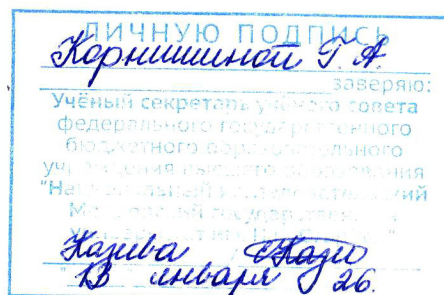 ЛИЧНУЮ ПОДПИСЬ
Корнишиной Г. А.
заверяю:
Учёный секретарь учёного совета
федерального государственного
бюджетного образовательного
учреждения высшего образования
"Национальный исследовательский
Мордовский государственный
13 января 26.